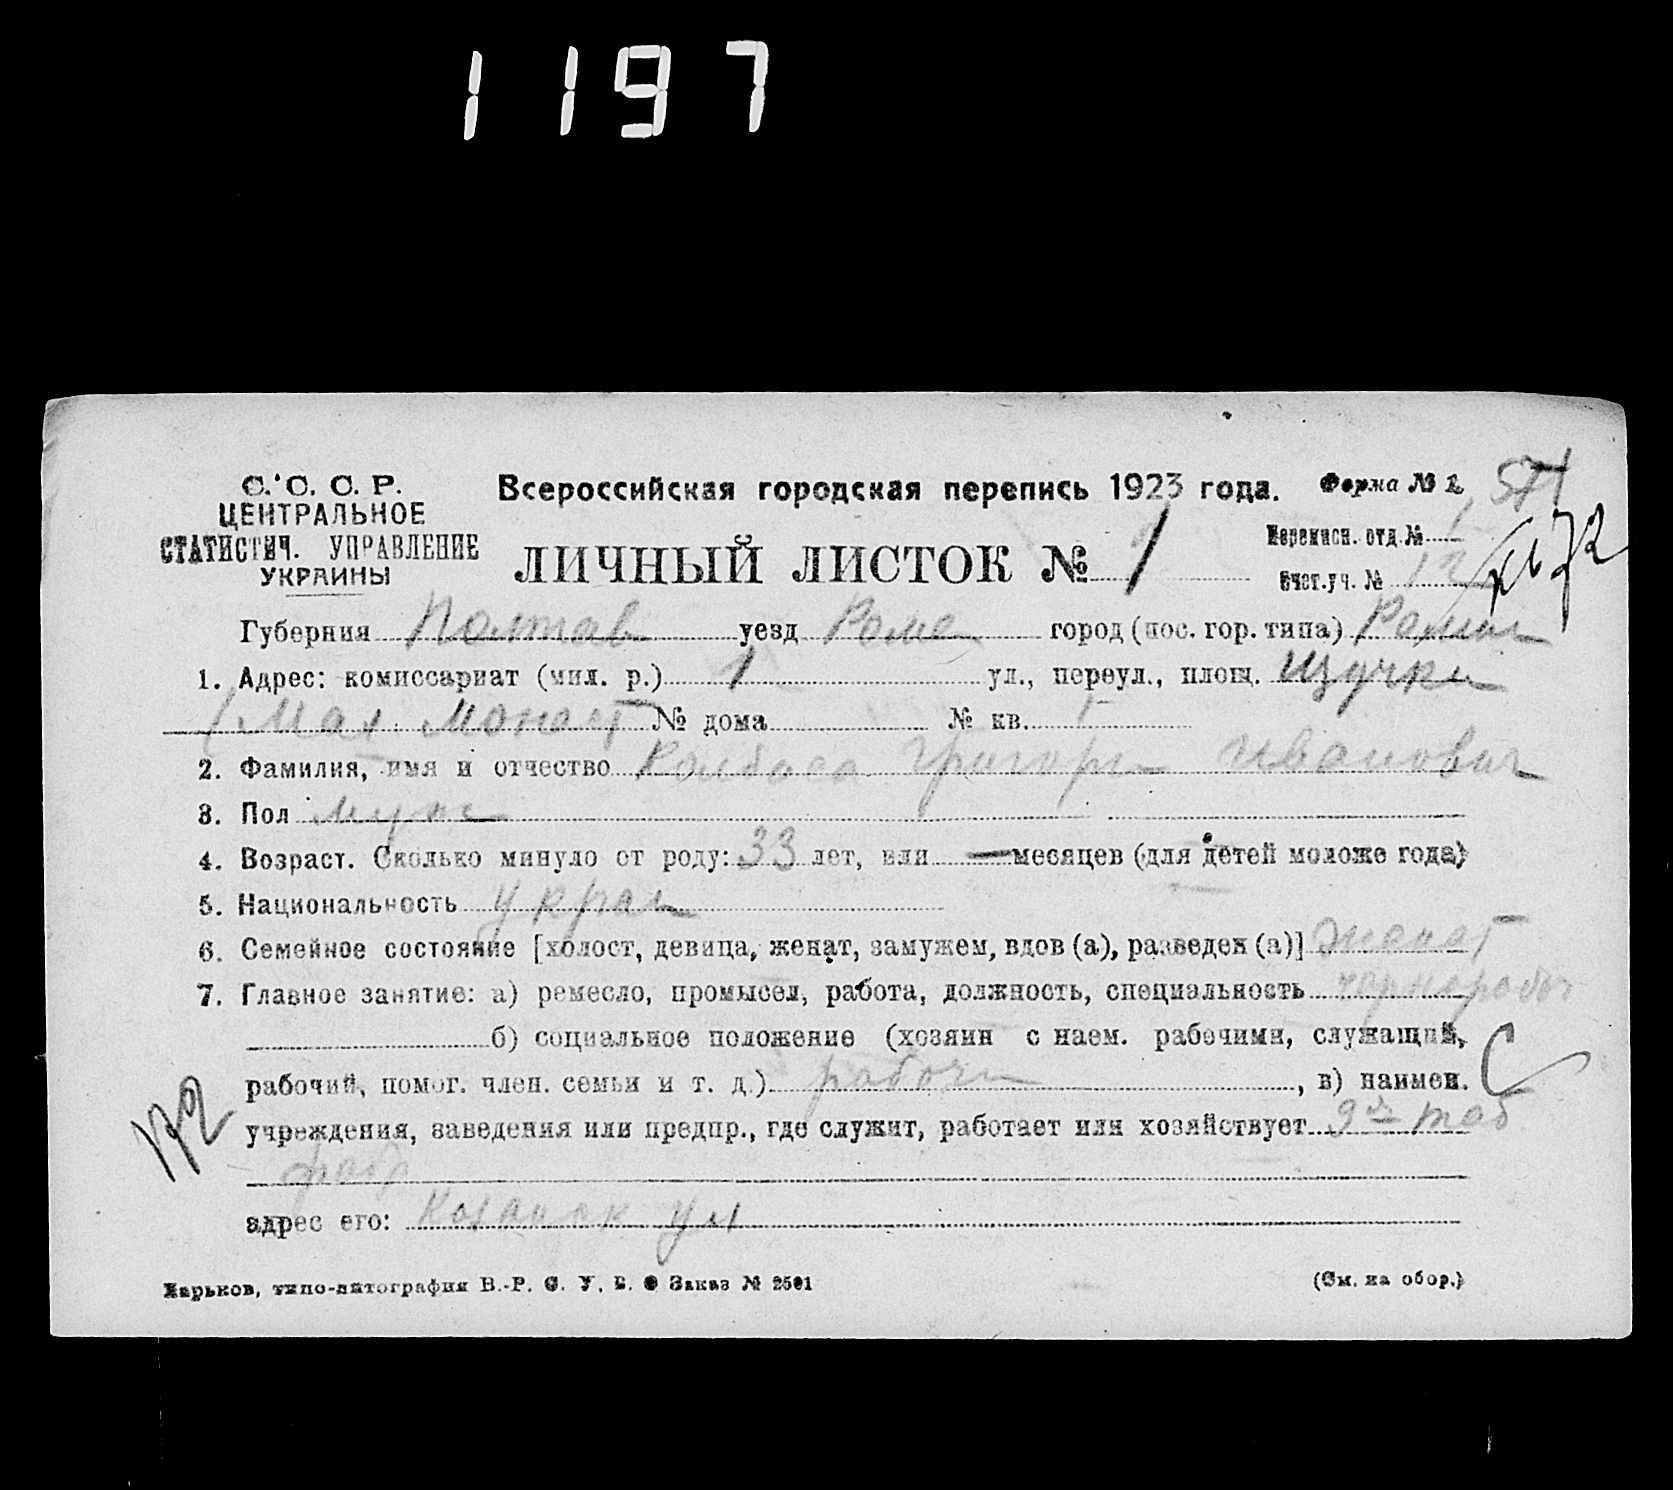 1197
С. С. С. Р.
ЦЕНТРАЛЬНОЕ
СТАТИСТИЧ. УПРАВЛЕНИЕ
УКРАИНЫ
Всероссийская городская перепись 1923 года.
Форма № 1
ЛИЧНЫЙ ЛИСТОК № 1
Переписн. отд. № 1
Счет. уч. № 12
Губерния Полтав уезд Роме город (пос. гор. типа) Ромны
1. Адрес: комиссариат (мил. р.) 1 ул., переул., площ.
(Мал. Монаст № дома № кв.
2. Фамилия, имя и отчество Колбаса Григори Иванович
3. Пол муж
4. Возраст. Сколько минуло от роду: 33 лет, или — месяцев (для детей моложе года)
5. Национальность украи
6. Семейное состояние [холост, девица, женат, замужем, вдов (а), разведен (а)] женат
7. Главное занятие: а) ремесло, промысел, работа, должность, специальность чернорабоч
б) социальное положение (хозяин с наем. рабочими, служащий,
рабочий, помог. член. семьи и т. д.) рабочи , в) наимен.
учреждения, заведения или предпр., где служит, работает или хозяйствует таб
фабр
адрес его: ул
172
Харьков, типо-литография В.-Р. С. У. В. О Заказ № 2501
(См. на обор.)